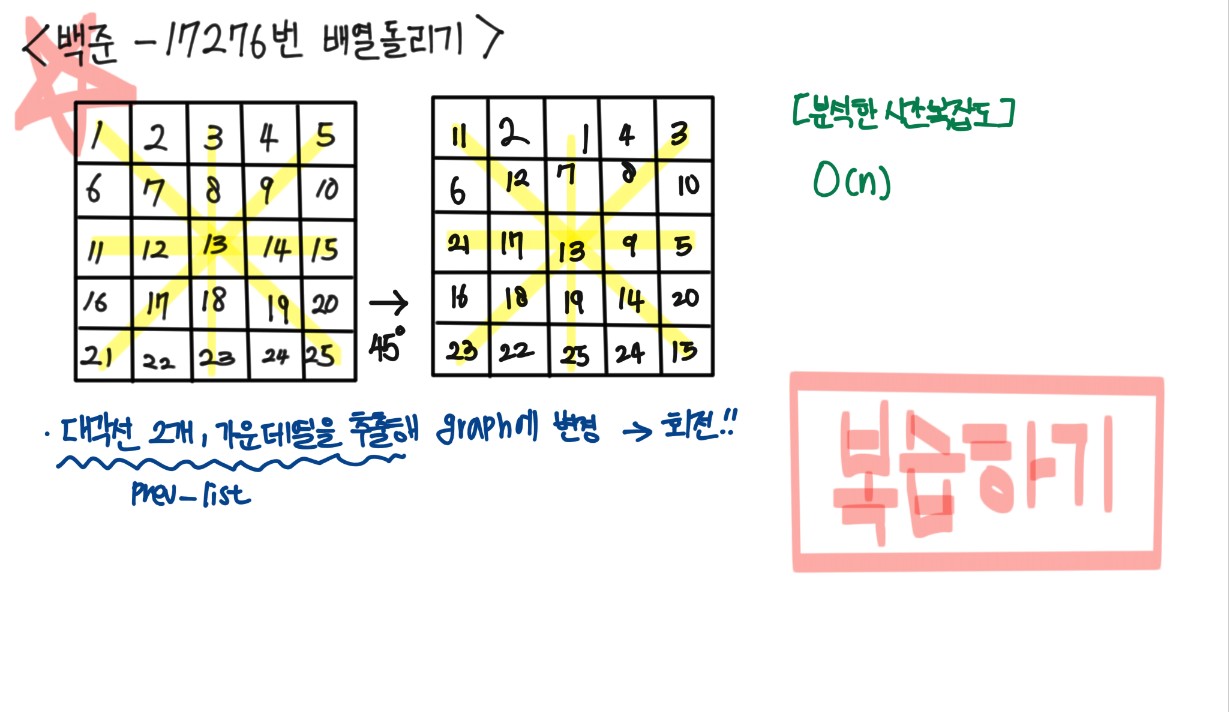 <백준 - 17276번 배열돌리기>
1 2 3 4 5
6 7 8 9 10
11 12 13 14 15
16 17 18 19 20
21 22 23 24 25
→
45°
11 2 1 4 3
6 12 7 8 10
21 17 13 9 5
16 18 19 14 20
23 22 25 24 15
[분석한 시간복잡도]
O(n)
· 대각선 2개, 가운데열을 추출해 graph에 변경 → 회전!!
prev_list
복습하기